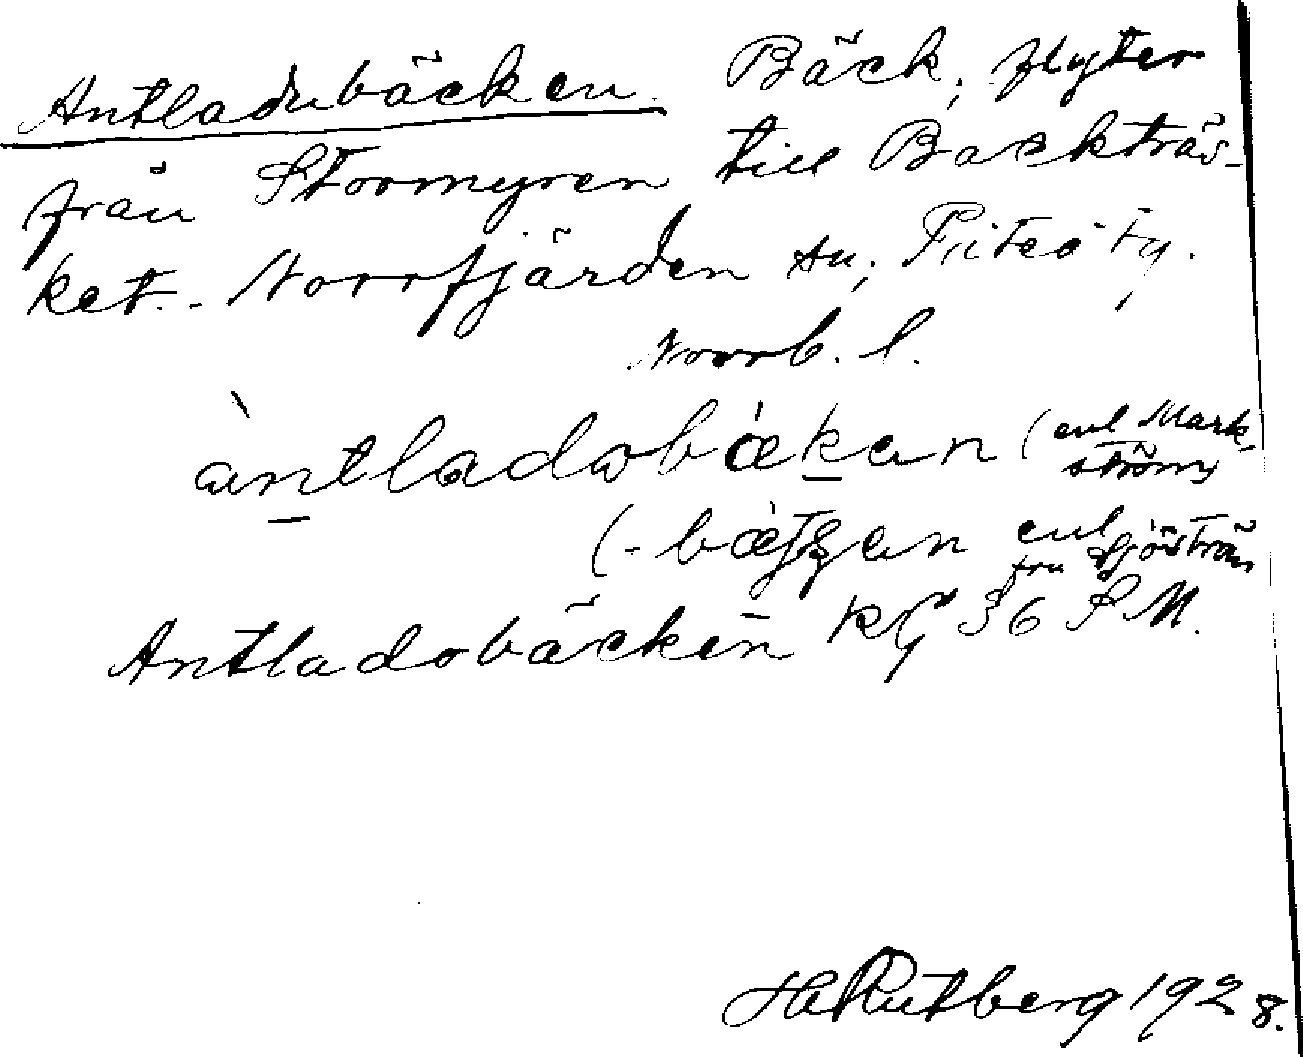 Antladubäcken. Bäck, flyter
från Stormyren till Backträs-
ket. Norrfjärden sn, Piteå tg.
Norrb. l.
àntladωbækan (enl Mark-
ströms
(-bætʒan enl
fru Sjöströms
Antladobäcken kG 36 S M.
H Rutberg 1928.